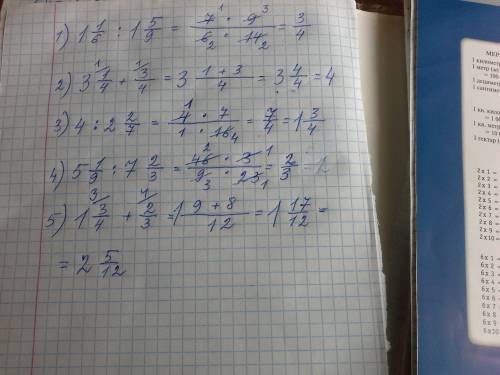 1) 1 1/6 : 1 5/9 = 7¹ · 9³ / 6₂ · 14₂ = 3/4
2) 3 1/4 + 3/4 = 3 (1 + 3)/4 = 3 4/4 = 4
3) 4 : 2 2/7 = 4¹ · 7 / 1 · 16₄ = 7/4 = 1 3/4
4) 5 1/9 : 7 2/3 = 46² · 3¹ / 9₃ · 23₁ = 2/3
5) 1 3/4 + 2/3 = 1 (9 + 8)/12 = 1 17/12 =
= 2 5/12
МЕР
1 километр
1 метр (м)
= 100
1 дециметр
1 сантиме
1 кв. кило
= 1 00
1 кв. метр
= 10
1 гектар (
2 x 1 =
2 x 2 =
2 x 3 =
2 x 4 =
2 x 5 =
2 x 6 =
2 x 7 =
2 x 8 =
2 x 9 =
2 x 10 =
6 x 1 =
6 x 2 =
6 x 3 =
6 x 4 =
6 x 5 =
6 x 6 =
6 x 7 =
6 x 8 =
6 x 9 =
6 x 10